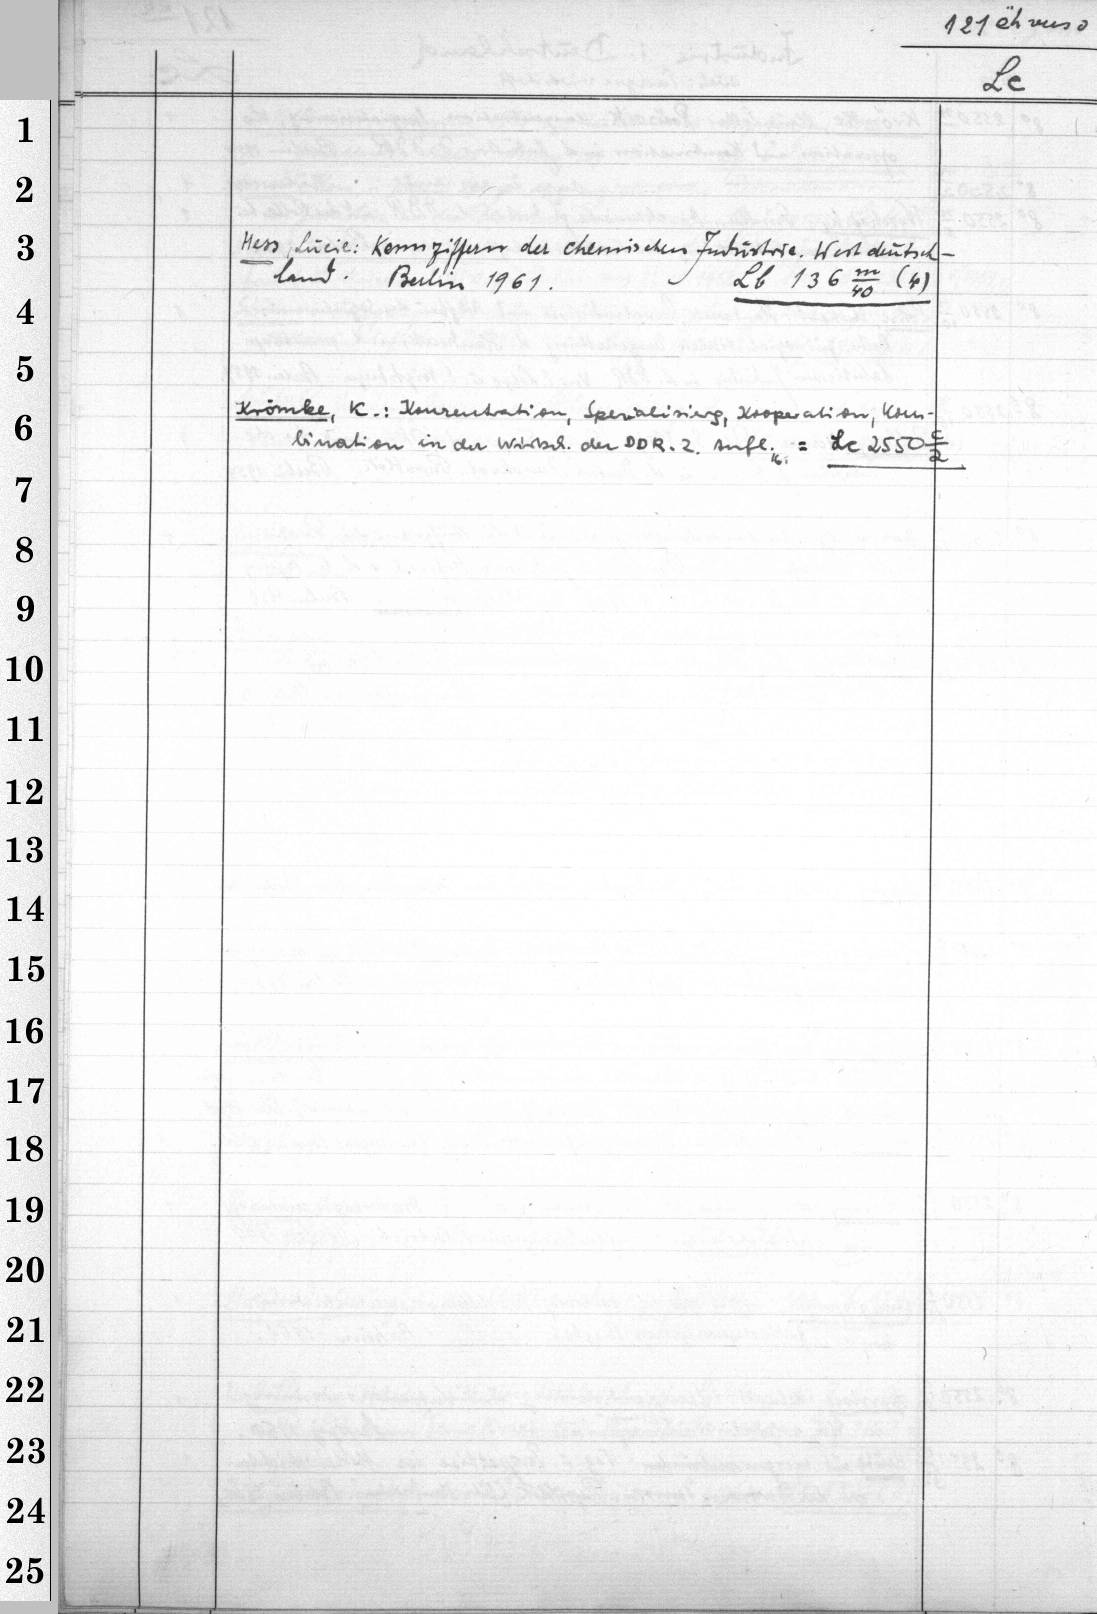 121
Lc
1
2
3
Hess, Lucie: Kennziffern der chemischen Industrie. Westdeutsch-
land. Berlin 1961. Lb 136 m/40 (4)
4
5
6
Krömke, K.: Konzentration, Spezialisierg, Kooperation, Kom-
bination in der Wirtsch. der DDR. 2. Aufl. = Lc 2550 c/2
7
8
9
10
11
12
13
14
15
16
17
18
19
20
21
22
23
24
25